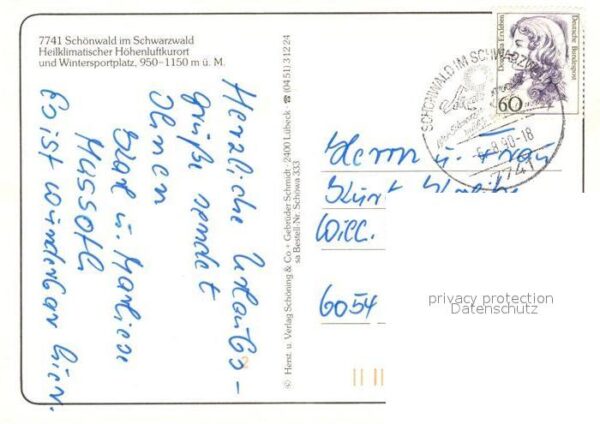 7741 Schönwald im Schwarzwald
Heilklimatischer Höhenluftkurort
und Wintersportplatz, 950–1150 m ü. M.
Herzliche Urlaubs-
grüße sendet
Ihnen
u. Marliese
Mussotk
Es ist wunderbar hier.
© Herst. u. Verlag Schöning & Co + Gebrüder Schmidt · 2400 Lübeck · ☎ (04 51) 3 12 24
sa Bestell-Nr. Schöwa 333
Dorothea Erxleben
Deutsche Bundespost
60
SCHÖNWALD IM SCHWARZW
-8.90-18
7741
Herrn u. Frau
Kurt
Will.
6054
privacy protection
Datenschutz